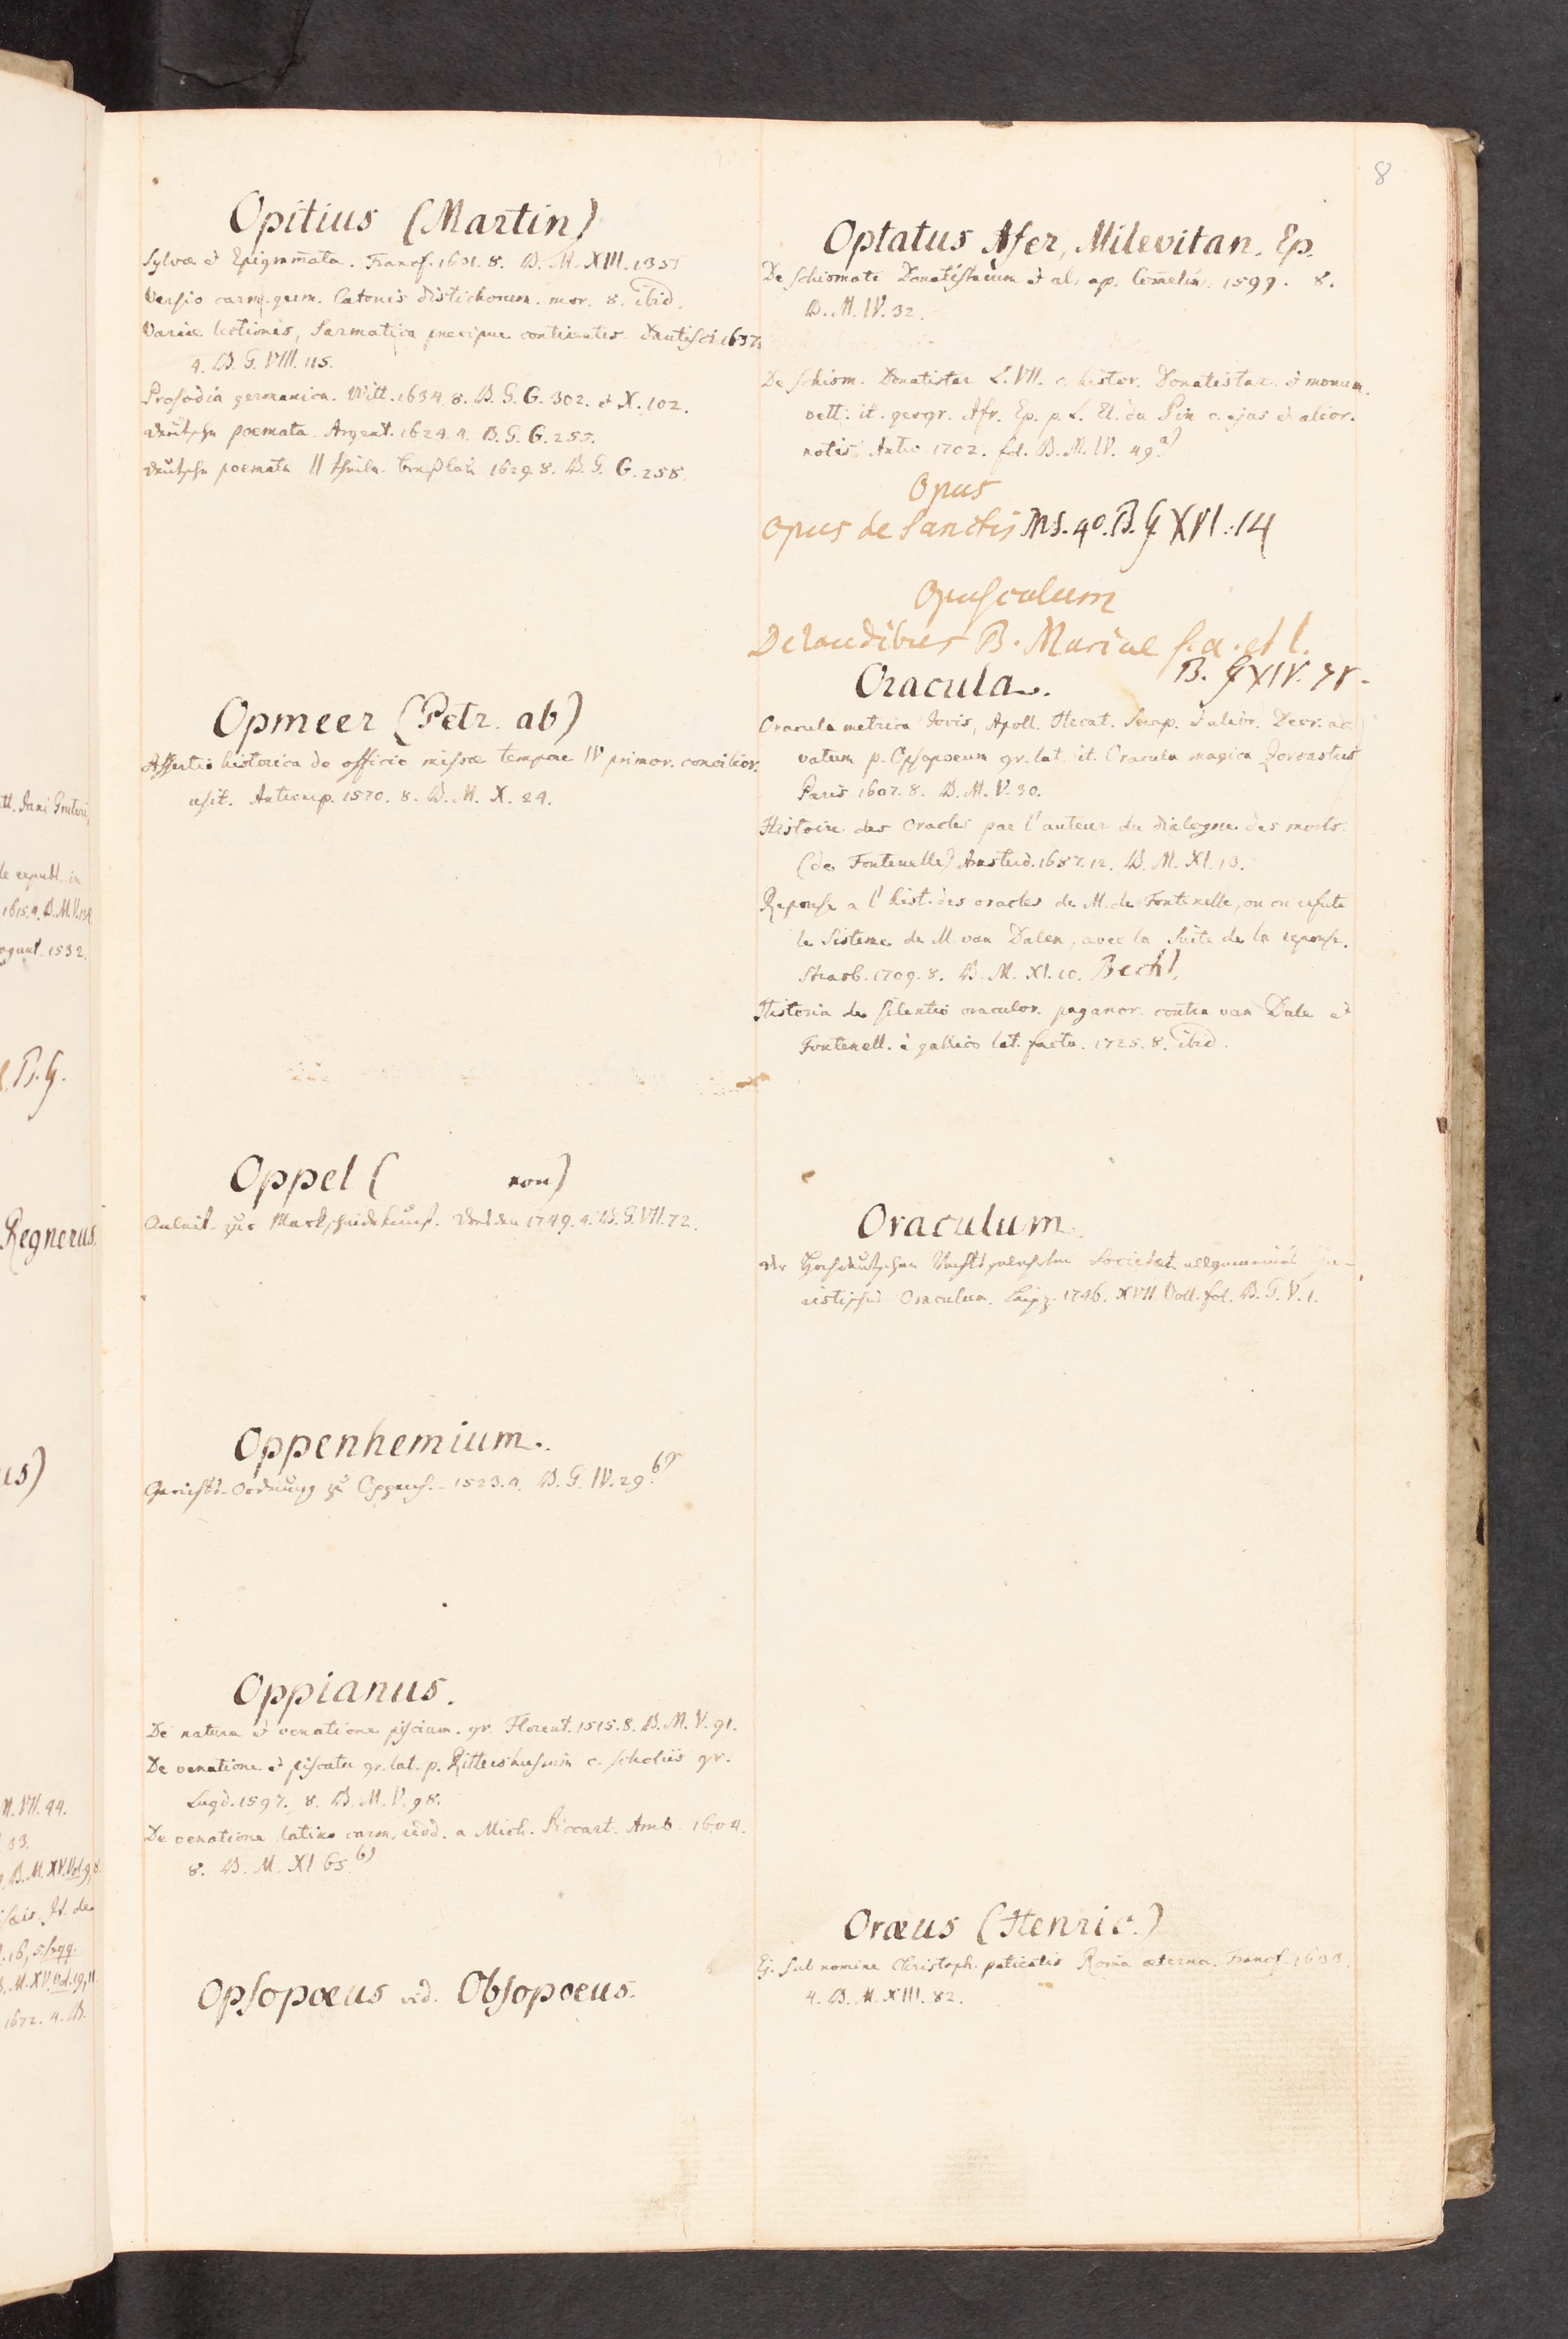 8
Opitius (Martin)
Sylvæ et Epigram̄ata. Francf. 1631. 8. B. M. XIII. 135
Versio carm. germ. Catonis distichorum. mor. 8. ibid.
Variæ lectionis, Sarmatica præcipue continentes Dantisci. 1637.
4. B. G. VIII. 115.
Prosodia germanica. Witt. 1634. 8. B. G. G. 302. et X. 102.
deutsche poemata. Argent. 1624. 4. B. G. G. 255.
deutsche poemata II theile. breßlau 1629. 8. B. G. G. 258.
Opmeer (Petr. ab)
Assertio historica de officio missæ tempore IV primor. concilior.
usit. Antverp. 1570. 8. B. M. X. 24.
Oppel ( von)
Anleit. zur Markscheidekunst. Dresden 1749. 4. B. G. VII. 72.
Oppenhemium.
Gerichts-Ordnung zu Oppenh. 1523. 4. B. G. IV. 29. b)
Oppianus.
De natura et venatione piscium. gr. Florent. 1515. 8. B. M. V. 91.
De venatione et piscatu gr. lat. p. Rittershusium c. scholiis gr.
Lugd. 1597. 8. B. M. V. 98.
De venatione latino carm. redd. a Mich. Piccart. Amb. 1604.
8. B. M. XI. 65. b)
Opsopœus vid. Obsopoeus.
Optatus Afer, Milevitan. Ep.
De schismate Donatistarum et al. ap. Com̄elin. 1599. 8.
B. M. IV. 32.
De schism. Donatistar. L. VII. c. histor. Donatistar. et monum.
vett. it. geogr. Afr. Ep. p. L. El. du Pin c. ejus et alior.
notis. Antv. 1702. fol. B. M. IV. 49. a)
Opus
Opus de Sanctis Ms. 4o. B. G. XVI. 14
Opusculum
De laudibus B. Mariae s. a. et l.
B. G. XIV.
Oracula.
Oracula metrica Jovis, Apoll. Hecat. Serap. et alior. Deor. ac
vatum p. Opsopoeum gr. lat. it. Oracula magica Zoroastris
Paris 1607. 8. B. M. V. 30.
Histoire des Oracles par l'auteur du dialogue des morts.
(de Fontenelle) Amsterd. 1687. 12. B. M. XI. 13.
Reponse a l'hist. des oracles de M. de Fontenelle, ou on refute
le Sisteme de M. van Dalen, avec la Suite de la reponse.
Strasb. 1709. 8. B. M. XI. 10. Becht.
Historia de silentio oraculor. paganor. contra van Dale et
Fontenell. è gallico lat. facta. 1725. 8. ibid.
Oraculum.
der Hochdeutschen Rechtsgelehrten Societæt allgemeines Ju-
ristisches Oraculum. Leipz. 1746. XVII Voll. fol. B. G. V. 1.
Oræus (Henric.)
Ej. sub nomine Christoph. Roma æterna. Francf.
4. B. M. XIII. 82.